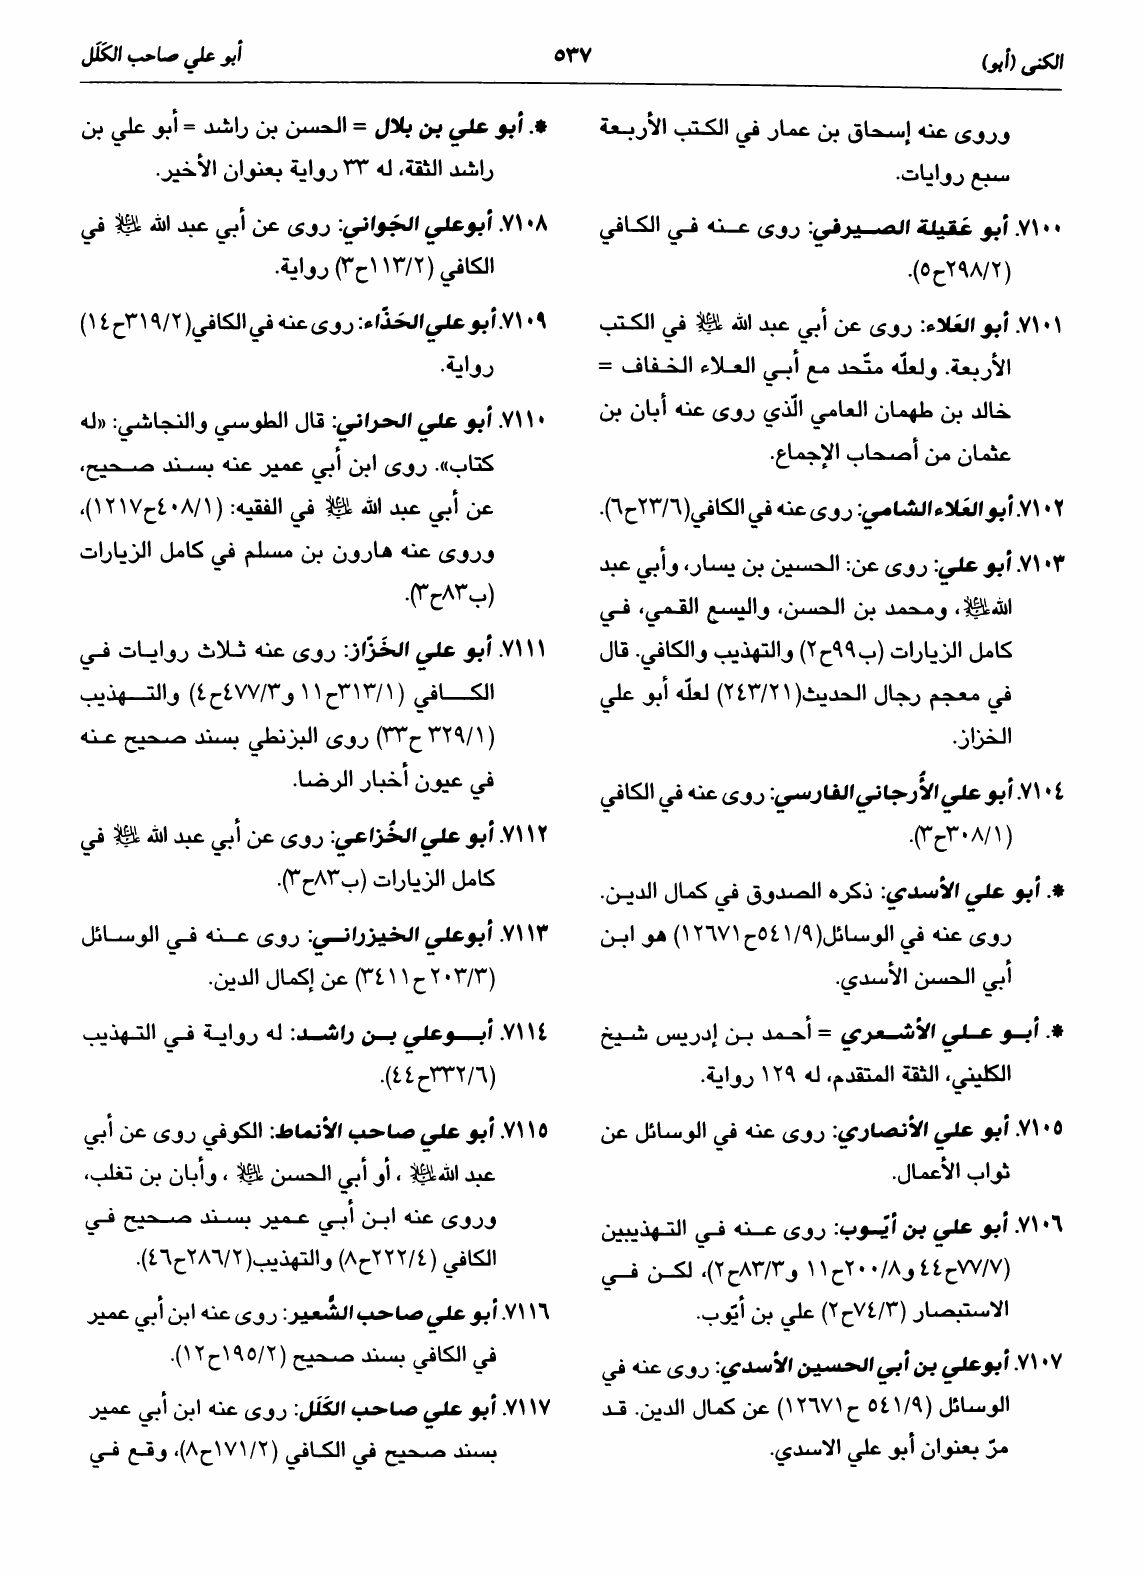 الكنى (أبو)
٥٣٧
أبو علي صاحب الكَلَل
وروى عنه إسحاق بن عمار في الكتب الأربعة
سبع روايات.
٧١٠٠. أبو عَقيلة الصيرفي: روى عنه في الكافي
(٢٩٨/٢ح٥).
٧١٠١. أبو العَلاء: روى عن أبي عبد الله ﷺ في الكتب
الأربعة. ولعلّه متّحد مع أبي العلاء الخفاف =
خالد بن طهمان العامي الّذي روى عنه أبان بن
عثمان من أصحاب الإجماع.
٧١٠٢. أبو العَلاء الشامي: روى عنه في الكافي(٢٣/٦ح٦).
٧١٠٣. أبو علي: روى عن: الحسين بن يسار، وأبي عبد
الله ﷺ، ومحمد بن الحسن، واليسع القمي، في
كامل الزيارات (ب٩٩ح٢) والتهذيب والكافي. قال
في معجم رجال الحديث(٢٤٣/٢١) لعلّه أبو علي
الخزاز.
٧١٠٤. أبو علي الأُرجاني الفارسي: روى عنه في الكافي
(٣٠٨/١ح٣).
*. أبو علي الأسدي: ذكره الصدوق في كمال الدين.
روى عنه في الوسائل(٥٤١/٩ح١٢٦٧١) هو ابن
أبي الحسن الأسدي.
*. أبو علي الأشعري = أحمد بن إدريس شيخ
الكليني، الثقة المتقدم، له ١٢٩ رواية.
٧١٠٥. أبو علي الأنصاري: روى عنه في الوسائل عن
ثواب الأعمال.
٧١٠٦. أبو علي بن أيّوب: روى عنه في التهذيبين
(٧٧/٧ح٤٤ و٢٠٠/٨ح١١ و٨٣/٣ح٢)، لكن في
الاستبصار (٧٤/٣ح٢) علي بن أيّوب.
٧١٠٧. أبوعلي بن أبي الحسين الأسدي: روى عنه في
الوسائل (٥٤١/٩ ح١٢٦٧١) عن كمال الدين. قد
مرّ بعنوان أبو علي الاسدي.
*. أبو علي بن بلال = الحسن بن راشد = أبو علي بن
راشد الثقة، له ٣٣ رواية بعنوان الأخير.
٧١٠٨. أبوعلي الجَواني: روى عن أبي عبد الله ﷺ في
الكافي (١١٣/٢ح٣) رواية.
٧١٠٩. أبو علي الحَذّاء: روى عنه في الكافي(٣١٩/٢ح١٤)
رواية.
٧١١٠. أبو علي الحراني: قال الطوسي والنجاشي: «له
كتاب». روى ابن أبي عمير عنه بسند صحيح،
عن أبي عبد الله ﷺ في الفقيه: (٤٠٨/١ح١٢١٧)،
وروى عنه هارون بن مسلم في كامل الزيارات
(ب٨٣ح٣).
٧١١١. أبو علي الخَزّاز: روى عنه ثلاث روايات في
الكافي (٣١٣/١ح١١ و٤٧٧/٣ح٤) والتهذيب
(٣٢٩/١ ح٣٣) روى البزنطي بسند صحيح عنه
في عيون أخبار الرضا.
٧١١٢. أبو علي الخُزاعي: روى عن أبي عبد الله ﷺ في
كامل الزيارات (ب٨٣ح٣).
٧١١٣. أبوعلي الخيزراني: روى عنه في الوسائل
(٢٠٣/٣ ح٣٤١١) عن إكمال الدين.
٧١١٤. أبوعلي بن راشد: له رواية في التهذيب
(٣٣٢/٦ح٤٤).
٧١١٥. أبو علي صاحب الأنماط: الكوفي روى عن أبي
عبد الله ﷺ، أو أبي الحسن ﷺ ، وأبان بن تغلب،
وروى عنه ابن أبي عمير بسند صحيح في
الكافي (٢٢٢/٤ح٨) والتهذيب(٢٨٦/٢ح٤٦).
٧١١٦. أبو علي صاحب الشَّعير: روى عنه ابن أبي عمير
في الكافي بسند صحيح (١٩٥/٢ح١٢).
٧١١٧. أبو علي صاحب الكَلَل: روى عنه ابن أبي عمير
بسند صحيح في الكافي (١٧١/٢ح٨)، وقع في